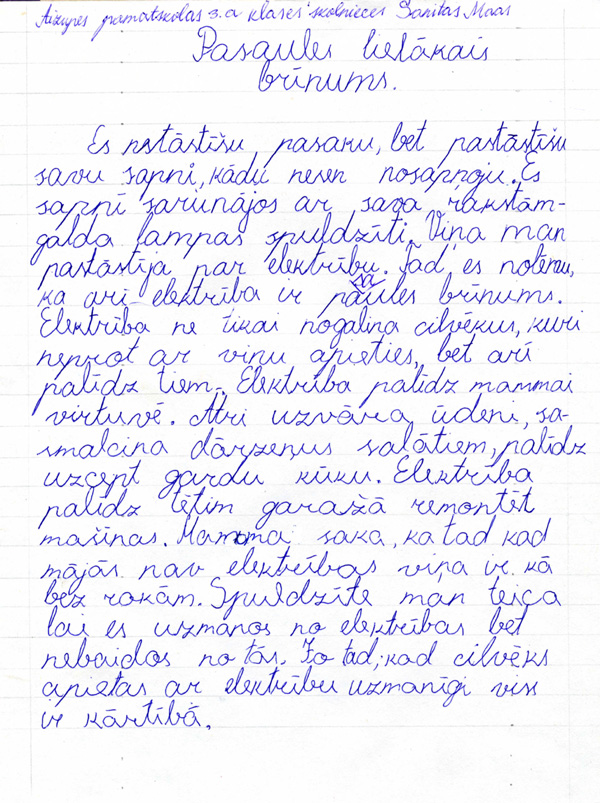 Aizupes pamatskolas 3.a klases skolnieces Sanitas Maas
Pasaules lielākais
brīnums.
Es nstāstīšu, pasaku, bet pastāstīšu
savu sapni, kādu nesen nosapņoju. Es
sapnī sarunājos ar sava rakstām-
galda lampas spuldzīti. Viņa man
pastāstīja par elektrību. Tad, es nolēmu,
ka arī elektrība ir pasaules brīnums.
Elektrība ne tikai nogalina cilvēkus, kuri
neprot ar viņu apieties, bet arī
palīdz tiem. Elektrība palīdz mammai
virtuvē. Ātri uzvāra ūdeni, sa-
smalcina dārzeņus salātiem, palīdz
uzcept gardu kūku. Elektrība
palīdz tētim garažā remontēt
mašīnas. Mamma saka, ka tad kad
mājās nav elektrības viņa ir kā
bez rokām. Spuldzīte man teica
lai es uzmanos no elektrības bet
nebaidos no tās. Jo tad, kad cilvēks
apietas ar elektrību uzmanīgi viss
ir kārtībā.